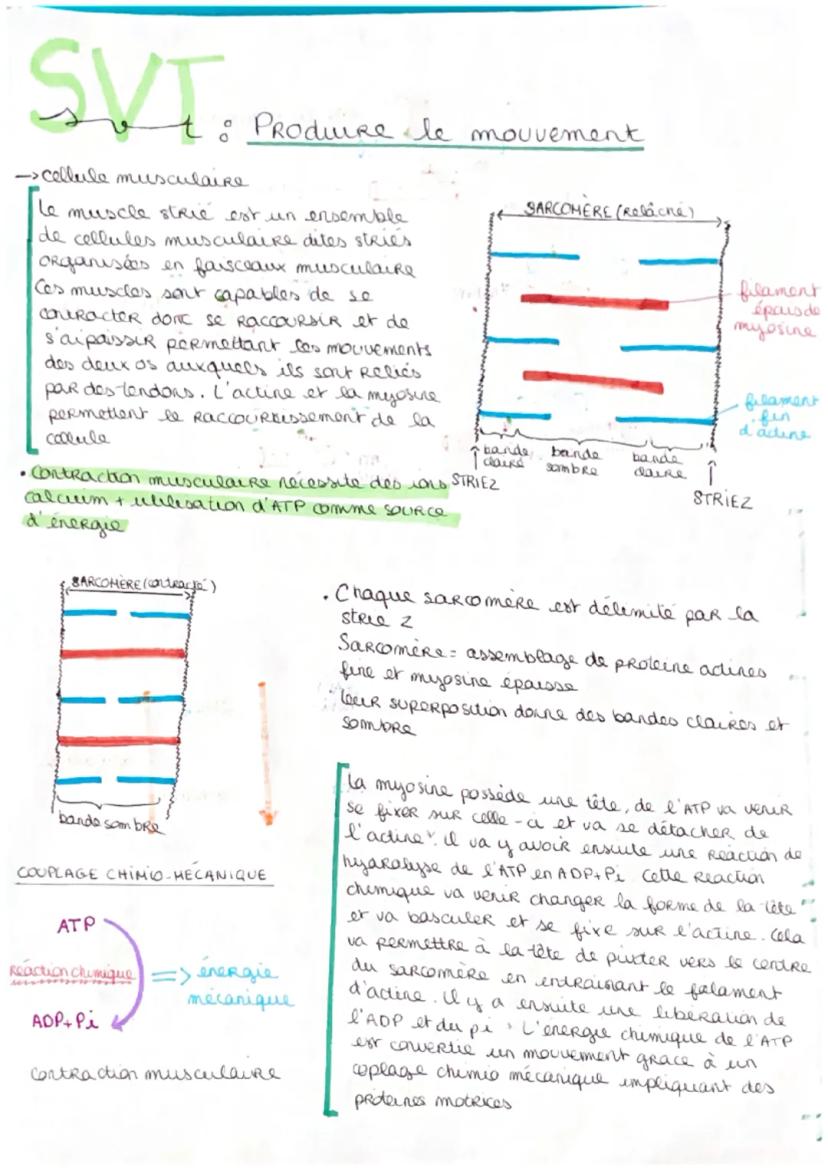 SVT
svt : Produire le mouvement
→ cellule musculaire
le muscle strié est un ensemble
de cellules musculaire dites striés
organisées en faisceaux musculaire
Ces muscles sont capables de se
contracter donc se raccoursir et de
s'aipaissir permettant les mouvements
des deux os auxquels ils sont reliés
par des tendons. L'actine et la myosine
permettent le raccourcissement de la
cellule
• Contraction musculaire nécessite des ions
calcium + utilisation d'ATP comme source
d'énergie
SARCOMÈRE (relâché)
filament
épais de
myosine
filament
fin
d'actine
bande
claire
bande
sombre
bande
claire
STRIEZ
STRIEZ
SARCOMÈRE (contracté)
bande sombre
• Chaque sarcomère est délimité par la
strie z
Sarcomère = assemblage de proteine actines
fine et myosine épaisse
leur superposition donne des bandes claires et
sombre
COUPLAGE CHIMIO-MÉCANIQUE
ATP
Réaction chimique => énergie
mécanique
ADP+Pi
contraction musculaire
la myosine possède une tête, de l'ATP va venir
se fixer sur celle-ci et va se détacher de
l'actine. il va y avoir ensuite une réaction de
hydaralyse de l'ATP en ADP+Pi Cette reaction
chimique va venir changer la forme de la tête
et va basculer et se fixe sur l'actine. Cela
va permettre à la tête de pivoter vers le centre
du sarcomère en entrainant le filament
d'actine. il y a ensuite une libération de
l'ADP et du pi. L'énergie chimique de l'ATP
est convertie en mouvement grace à un
coplage chimio mécanique impliquant des
protéines motrices